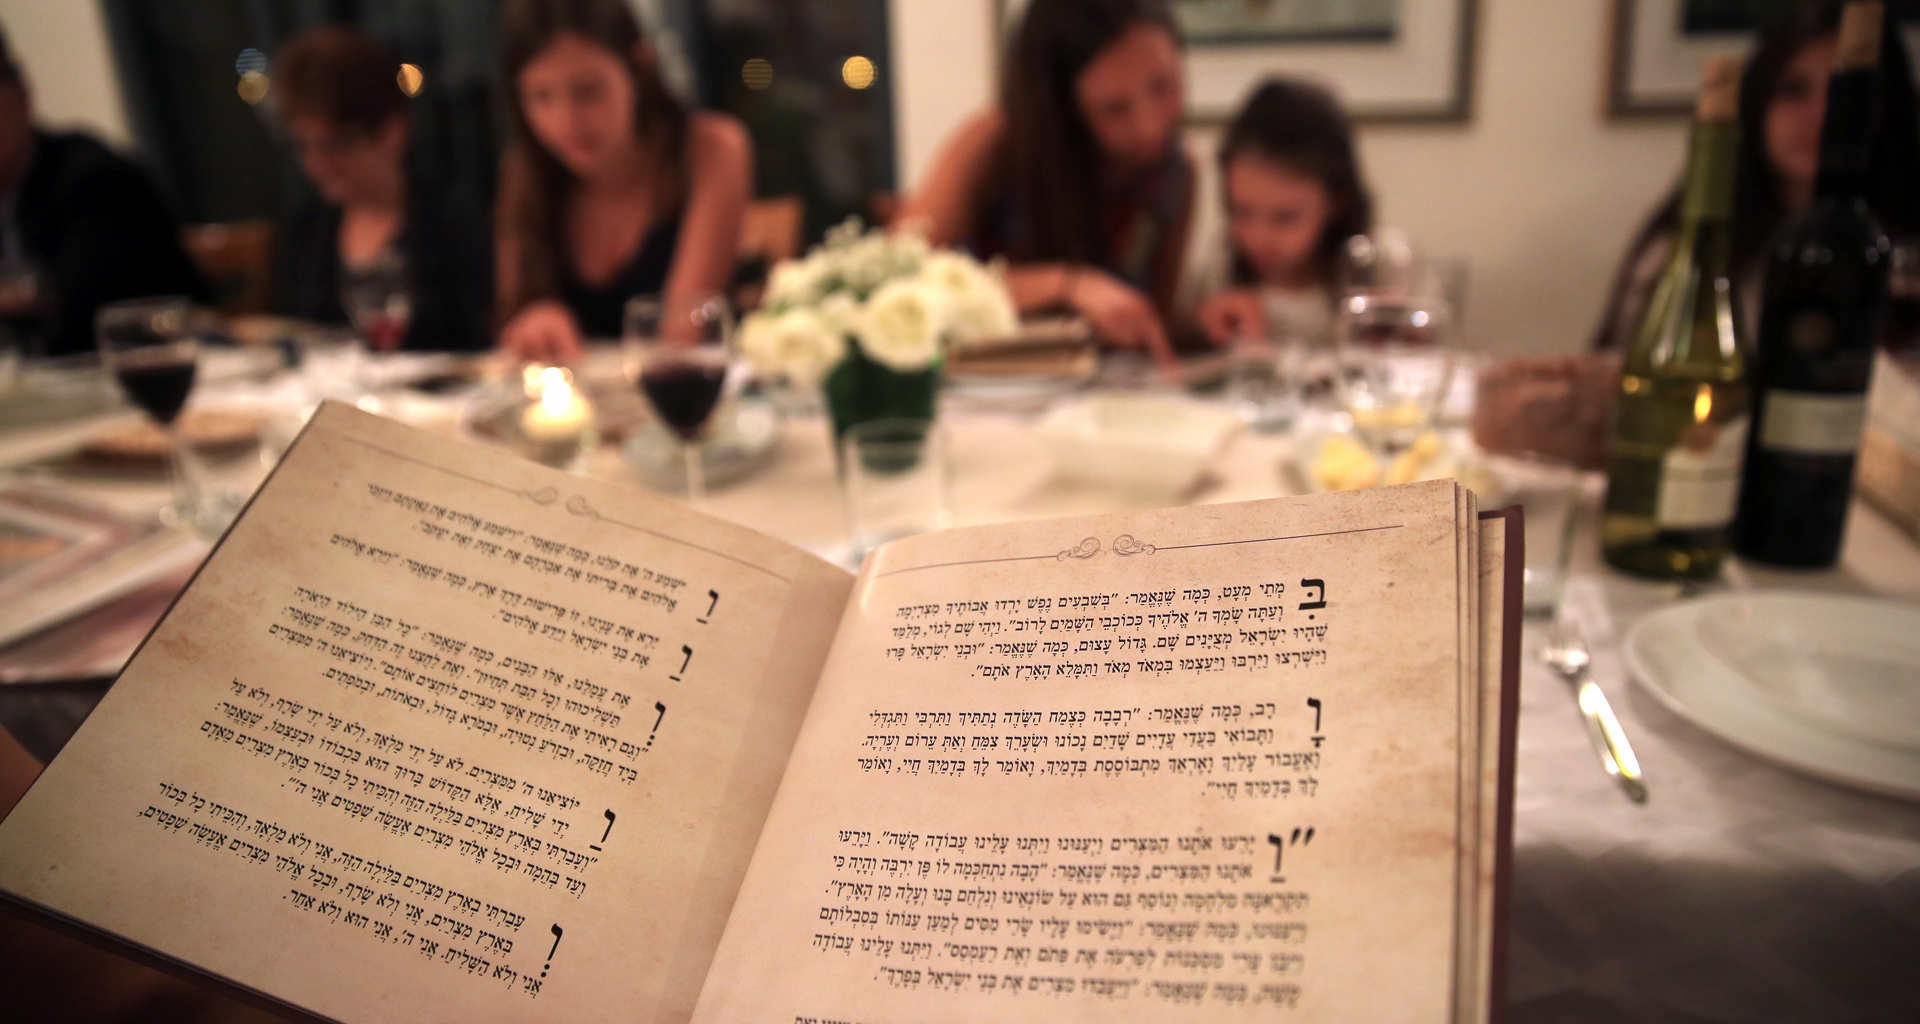 בִּמְתֵי מְעָט, כְּמָה שֶׁנֶּאֱמַר: "בְּשִׁבְעִים נֶפֶשׁ יָרְדוּ אֲבוֹתֶיךָ מִצְרָיְמָה
וְעַתָּה שָׂמְךָ ה' אֱלֹהֶיךָ כְּכוֹכְבֵי הַשָּׁמַיִם לָרוֹב". וַיְהִי שָׁם לְגוֹי, מְלַמֵּד
שֶׁהָיוּ יִשְׂרָאֵל מְצֻיָּנִים שָׁם. גָּדוֹל עָצוּם, כְּמָה שֶׁנֶּאֱמַר: "וּבְנֵי יִשְׂרָאֵל פָּרוּ
וַיִּשְׁרְצוּ וַיִּרְבּוּ וַיַּעַצְמוּ בִּמְאֹד מְאֹד וַתִּמָּלֵא הָאָרֶץ אֹתָם".
וָרָב, כְּמָה שֶׁנֶּאֱמַר: "רְבָבָה כְּצֶמַח הַשָּׂדֶה נְתַתִּיךְ וַתִּרְבִּי וַתִּגְדְּלִי
וַתָּבוֹאִי בַּעֲדִי עֲדָיִים שָׁדַיִם נָכוֹנוּ וּשְׂעָרֵךְ צִמֵּחַ וְאַתְּ עֵרוֹם וְעֶרְיָה.
וָאֶעֱבוֹר עָלַיִךְ וָאֶרְאֵךְ מִתְבּוֹסֶסֶת בְּדָמָיִךְ, וָאוֹמַר לָךְ בְּדָמַיִךְ חֲיִי, וָאוֹמַר
לָךְ בְּדָמַיִךְ חֲיִי".
"וַיָּרֵעוּ אֹתָנוּ הַמִּצְרִים וַיְעַנּוּנוּ וַיִּתְּנוּ עָלֵינוּ עֲבוֹדָה קָשָׁה". וַיָּרֵעוּ
אֹתָנוּ הַמִּצְרִים, כְּמָה שֶׁנֶּאֱמַר: "הָבָה נִתְחַכְּמָה לוֹ פֶּן יִרְבֶּה וְהָיָה כִּי
תִקְרֶאנָה מִלְחָמָה וְנוֹסַף גַּם הוּא עַל שׂוֹנְאֵינוּ וְנִלְחַם בָּנוּ וְעָלָה מִן הָאָרֶץ".
וַיְעַנּוּנוּ, כְּמָה שֶׁנֶּאֱמַר: "וַיָּשִׂימוּ עָלָיו שָׂרֵי מִסִּים לְמַעַן עַנּוֹתוֹ בְּסִבְלוֹתָם
וַיִּבֶן עָרֵי מִסְכְּנוֹת לְפַרְעֹה אֶת פִּתֹם וְאֶת רַעַמְסֵס". וַיִּתְּנוּ עָלֵינוּ עֲבוֹדָה
קָשָׁה, כְּמָה שֶׁנֶּאֱמַר: "וַיַּעֲבִדוּ מִצְרַיִם אֶת בְּנֵי יִשְׂרָאֵל בְּפָרֶךְ".
וַיִּשְׁמַע ה' אֶת קֹלֵנוּ, כְּמָה שֶׁנֶּאֱמַר: "וַיִּשְׁמַע אֱלֹהִים אֶת נַאֲקָתָם וַיִּזְכֹּר
אֱלֹהִים אֶת בְּרִיתוֹ אֶת אַבְרָהָם אֶת יִצְחָק וְאֶת יַעֲקֹב".
וַיַּרְא אֶת עָנְיֵנוּ, זוֹ פְּרִישׁוּת דֶּרֶךְ אֶרֶץ, כְּמָה שֶׁנֶּאֱמַר: "וַיַּרְא אֱלֹהִים
אֶת בְּנֵי יִשְׂרָאֵל וַיֵּדַע אֱלֹהִים".
וְאֶת עֲמָלֵנוּ, אֵלּוּ הַבָּנִים, כְּמָה שֶׁנֶּאֱמַר: "כָּל הַבֵּן הַיִּלּוֹד הַיְאֹרָה
תַּשְׁלִיכוּהוּ וְכָל הַבַּת תְּחַיּוּן". וְאֶת לַחֲצֵנוּ זֶה הַדְּחַק, כְּמָה שֶׁנֶּאֱמַר:
"וְגַם רָאִיתִי אֶת הַלַּחַץ אֲשֶׁר מִצְרַיִם לוֹחֲצִים אוֹתָם". וַיּוֹצִיאֵנוּ ה' מִמִּצְרַיִם
בְּיָד חֲזָקָה, וּבִזְרֹעַ נְטוּיָה, וּבְמֹרָא גָּדוֹל, וּבְאֹתוֹת, וּבְמֹפְתִים.
וַיּוֹצִיאֵנוּ ה' מִמִּצְרַיִם. לֹא עַל יְדֵי מַלְאָךְ, וְלֹא עַל יְדֵי שָׂרָף, וְלֹא עַל
יְדֵי שָׁלִיחַ, אֶלָּא הַקָּדוֹשׁ בָּרוּךְ הוּא בִּכְבוֹדוֹ וּבְעַצְמוֹ, שֶׁנֶּאֱמַר:
"וְעָבַרְתִּי בְּאֶרֶץ מִצְרַיִם בַּלַּיְלָה הַזֶּה וְהִכֵּיתִי כָּל בְּכוֹר בְּאֶרֶץ מִצְרַיִם מֵאָדָם
וְעַד בְּהֵמָה וּבְכָל אֱלֹהֵי מִצְרַיִם אֶעֱשֶׂה שְׁפָטִים אֲנִי ה'".
וְעָבַרְתִּי בְּאֶרֶץ מִצְרַיִם בַּלַּיְלָה הַזֶּה, אֲנִי וְלֹא מַלְאָךְ, וְהִכֵּיתִי כָּל בְּכוֹר
בְּאֶרֶץ מִצְרַיִם, אֲנִי וְלֹא שָׂרָף, וּבְכָל אֱלֹהֵי מִצְרַיִם אֶעֱשֶׂה שְׁפָטִים,
אֲנִי וְלֹא הַשָּׁלִיחַ. אֲנִי ה', אֲנִי הוּא וְלֹא אַחֵר.